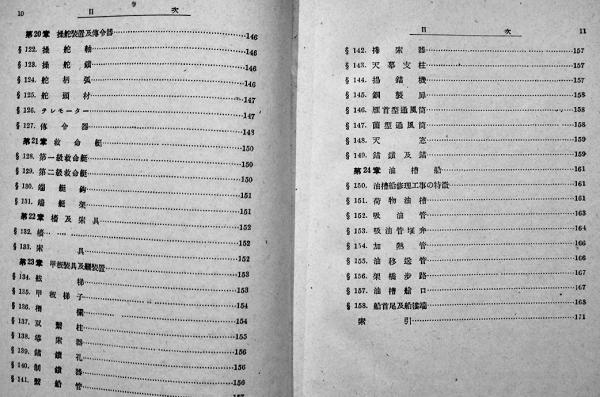 10 目 次
第20章 操舵装置及傳令器 146
§122. 操舵軸 146
§123. 操舵鎖 146
§124. 舵柄弧 146
§125. 舵頭材 147
§126. テレモーター 147
§127. 傳令器 148
第21章 救命艇 150
§128. 第一級救命艇 150
§129. 第二級救命艇 150
§130. 端艇鈎 151
§131. 端艇架 151
第22章 檣及索具 152
§132. 檣 152
§133. 索具 152
第23章 甲板装具及繋装置 153
§134. 舷梯 153
§135. 甲板梯子 154
§136. 欄 154
§137. 双繋柱 155
§138. 導索器 156
§139. 錨鎖孔 156
§140. 制鎖器 156
§141. 繋船管
目 次 11
§142. 捲索器 157
§143. 天幕支柱 157
§144. 揚錨機 157
§145. 鋼製扉 158
§146. 雁首型通風筒 158
§147. 菌型通風筒 158
§148. 天窓 159
§149. 錨鎖及錨 159
第24章 油槽船 161
§150. 油槽船修理工事の特徴 161
§151. 荷物油槽 161
§152. 吸油管 163
§153. 吸油管堰弁 164
§154. 加熱管 166
§155. 油移送管 166
§156. 架橋歩路 167
§157. 油槽艙口 167
§158. 船首尾及船樓端 168
索引 171